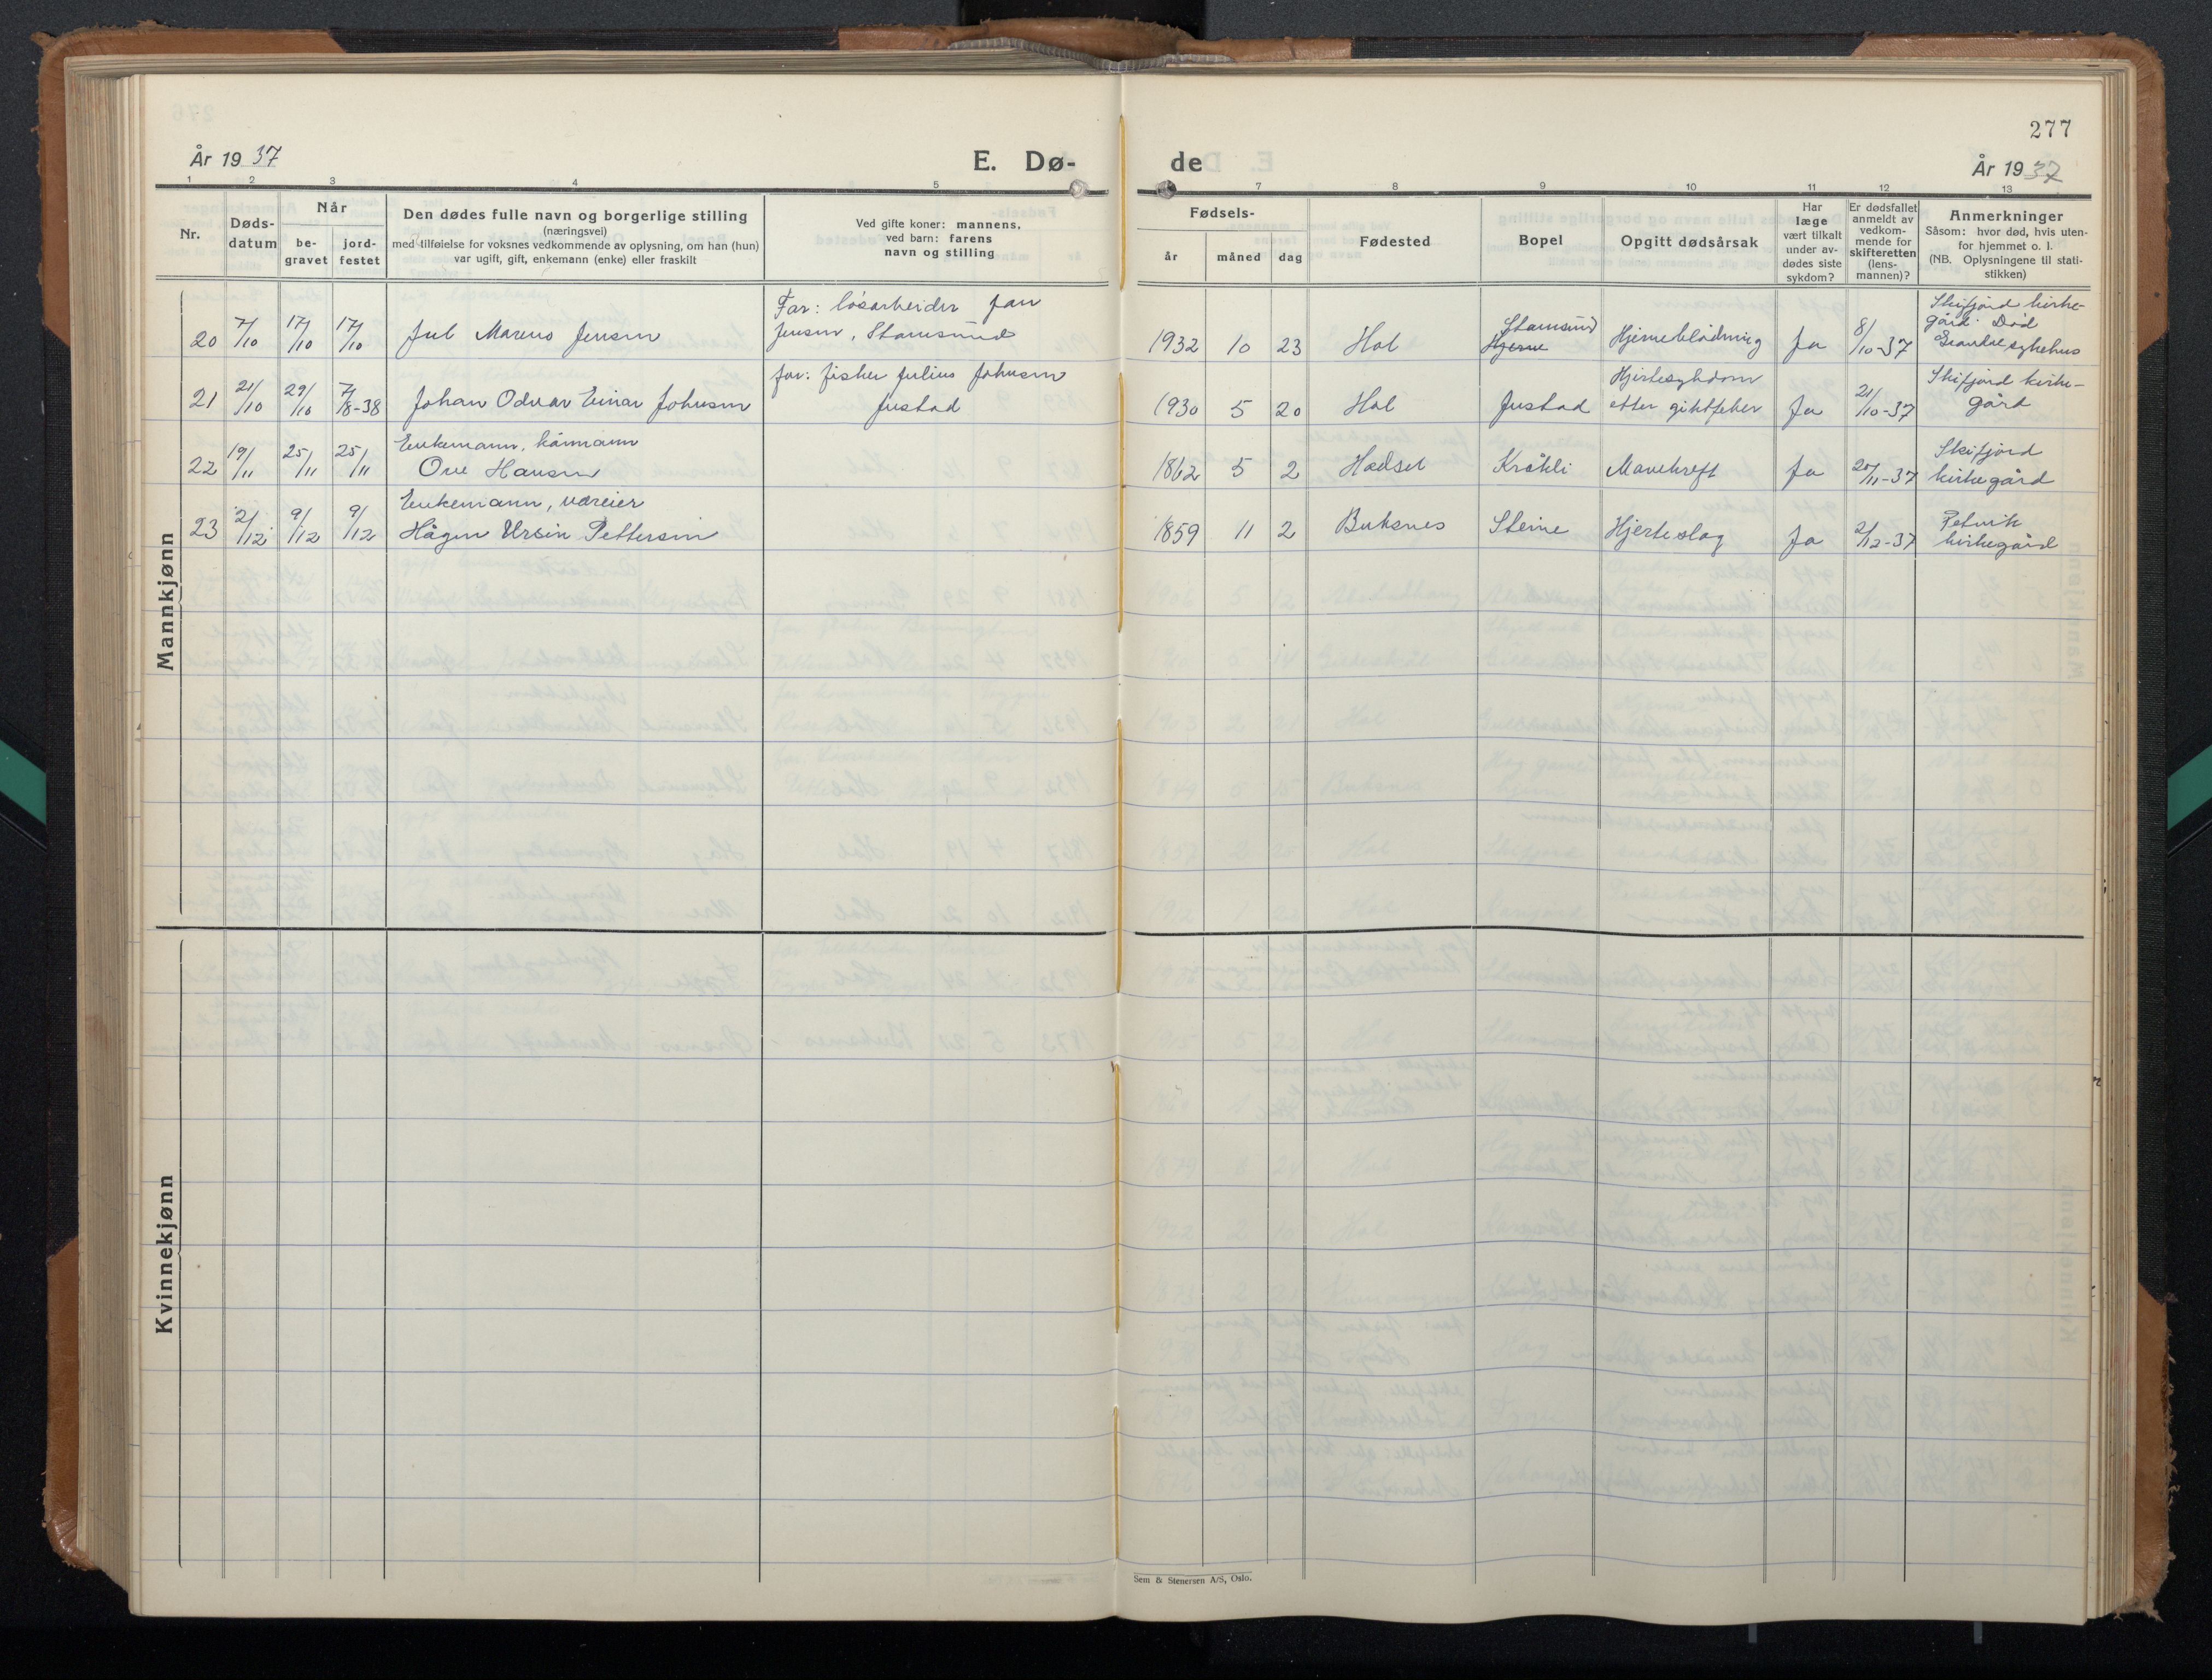 277
År 19 37
E. Dø-
de
År 19 37
1 2 3 4 5
7 8 9 10 11 12 13
Nr.
Døds-
datum
Når
be-
gravet
jord-
festet
Den dødes fulle navn og borgerlige stilling
(næringsvei)
med tilføielse for voksnes vedkommende av oplysning, om han (hun)
var ugift, gift, enkemann (enke) eller fraskilt
Ved gifte koner: mannens,
ved barn: farens
navn og stilling
Fødsels-
år
måned
dag
Fødested
Bopel
Opgitt dødsårsak
Har
læge
vært tilkalt
under av-
dødes siste
sykdom?
Er dødsfallet
anmeldt av
vedkom-
mende for
skifteretten
(lens-
mannen)?
Anmerkninger
Såsom: hvor død, hvis uten-
for hjemmet o. l.
(NB. Oplysningene til stati-
stikken)
Mannkjønn
20 7/10 17/10 17/10 Jul Marens Jensen
Far: løsarbeider Jan
Jensen, Stamsund
1932 10 23 Hol
Stamsund
Hjerne
Hjerneblødning Ja 8/10-37
Skifjord kirke-
gård. Død
Gravdal sykehus
21 21/10 29/10 7/8-38 Johan Odvar Einar Johnsen
far: fisker Julius Johnsen
Justad
1930 5 20 Hol Justad
Hjertesykdom
etter giktfeber Ja 21/10-37
Skifjord kirke-
gård
22 19/11 25/11 25/11
Enkemann, kårmann
Ove Hansen
1862 5 2 Hadsel Kråkli Mavekreft Ja 20/11-37
Skifjord
kirkegård
23 2/12 9/12 9/12
Enkemann, væreier
Hågen Ursin Pettersen
1859 11 2 Buksnes Steine Hjerteslag Ja 2/12-37
Petvik
kirkegård
Kvinnekjønn
Sem & Stenersen A/S, Oslo.